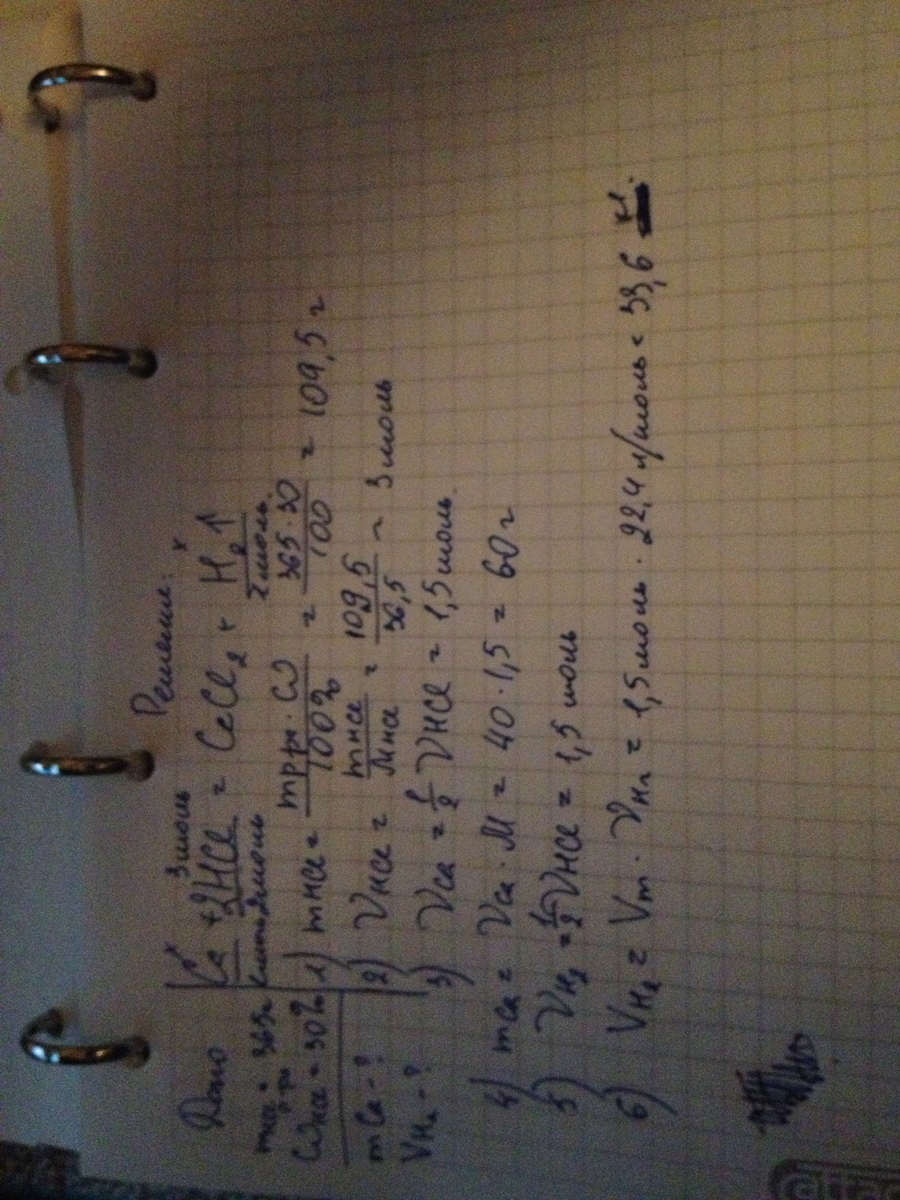 Дано
mHCl р-ра = 365г
ωHCl = 30%
mCa - ?
VH₂ - ?
Решение:
x 3 моль x
Ca + 2HCl = CaCl₂ + H₂↑
1 моль 2 моль 1 моль
1) mHCl = mр-ра · ω / 100% = 365·30 / 100 = 109,5 г
2) νHCl = mHCl / MHCl = 109,5 / 36,5 = 3 моль
3) νCa = 1/2 νHCl = 1,5 моль.
4) mCa = νCa · M = 40 · 1,5 = 60 г
5) νH₂ = 1/2 νHCl = 1,5 моль
6) VH₂ = Vm · νH₂ = 1,5 моль · 22,4 л/моль = 33,6 л.